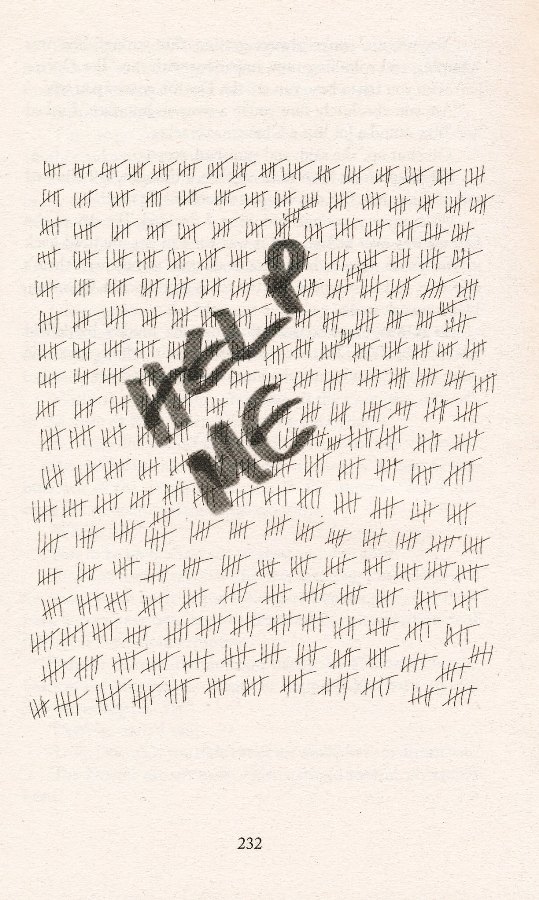 HELP
ME
232